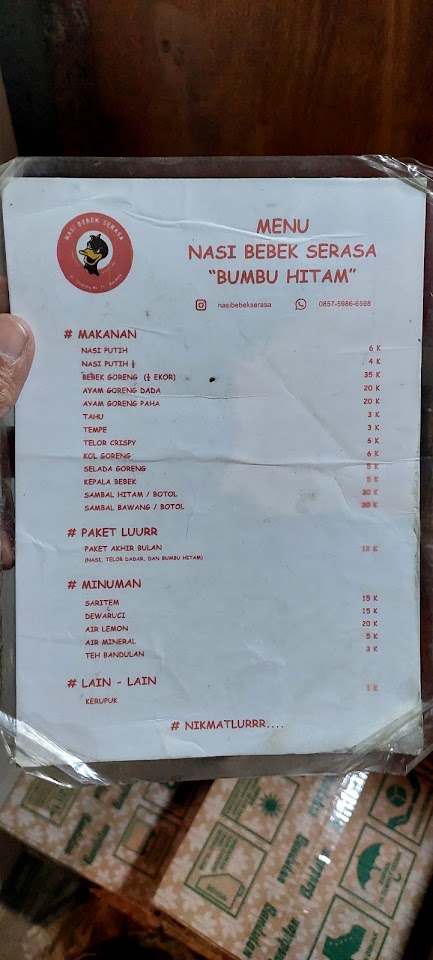 NASI BEBEK SERASA
MENU
NASI BEBEK SERASA
"BUMBU HITAM"
nasibebekserasa
0857-5986-6598
# MAKANAN
NASI PUTIH 6 K
NASI PUTIH ½ 4 K
BEBEK GORENG (¼ EKOR) 35 K
AYAM GORENG DADA 20 K
AYAM GORENG PAHA 20 K
TAHU 3 K
TEMPE 3 K
TELOR CRISPY 6 K
KOL GORENG 6 K
SELADA GORENG 5 K
KEPALA BEBEK 5 K
SAMBAL HITAM / BOTOL 30 K
SAMBAL BAWANG / BOTOL 30 K
# PAKET LUURR
PAKET AKHIR BULAN 12 K
(NASI, TELOR DADAR, DAN BUMBU HITAM)
# MINUMAN
SARITEM 15 K
DEWARUCI 15 K
AIR LEMON 20 K
AIR MINERAL 5 K
TEH BANDULAN 3 K
# LAIN - LAIN
KERUPUK 1 K
# NIKMATLURRR....